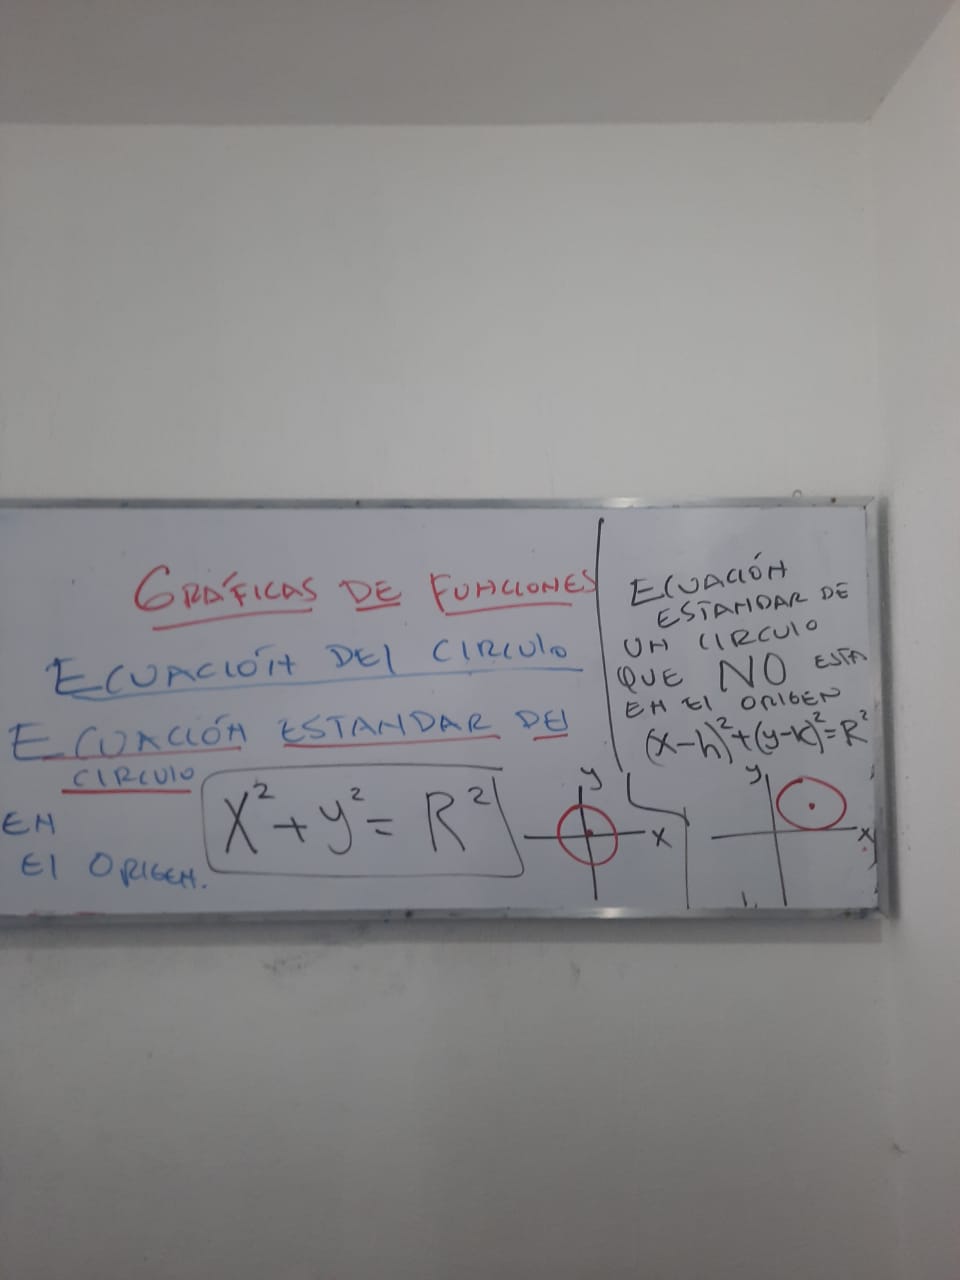 GRÁFICAS DE FUNCIONES
ECUACIÓN DEL CIRCULO
ECUACIÓN ESTANDAR DEL
CIRCULO
EN
El ORIGEN.
X²+y²=R²
y
x
ECUACIÓN
ESTANDAR DE
UN CIRCULO
QUE NO ESTA
EN El ORIGEN
(x-h)²+(y-k)²=R²
y
x